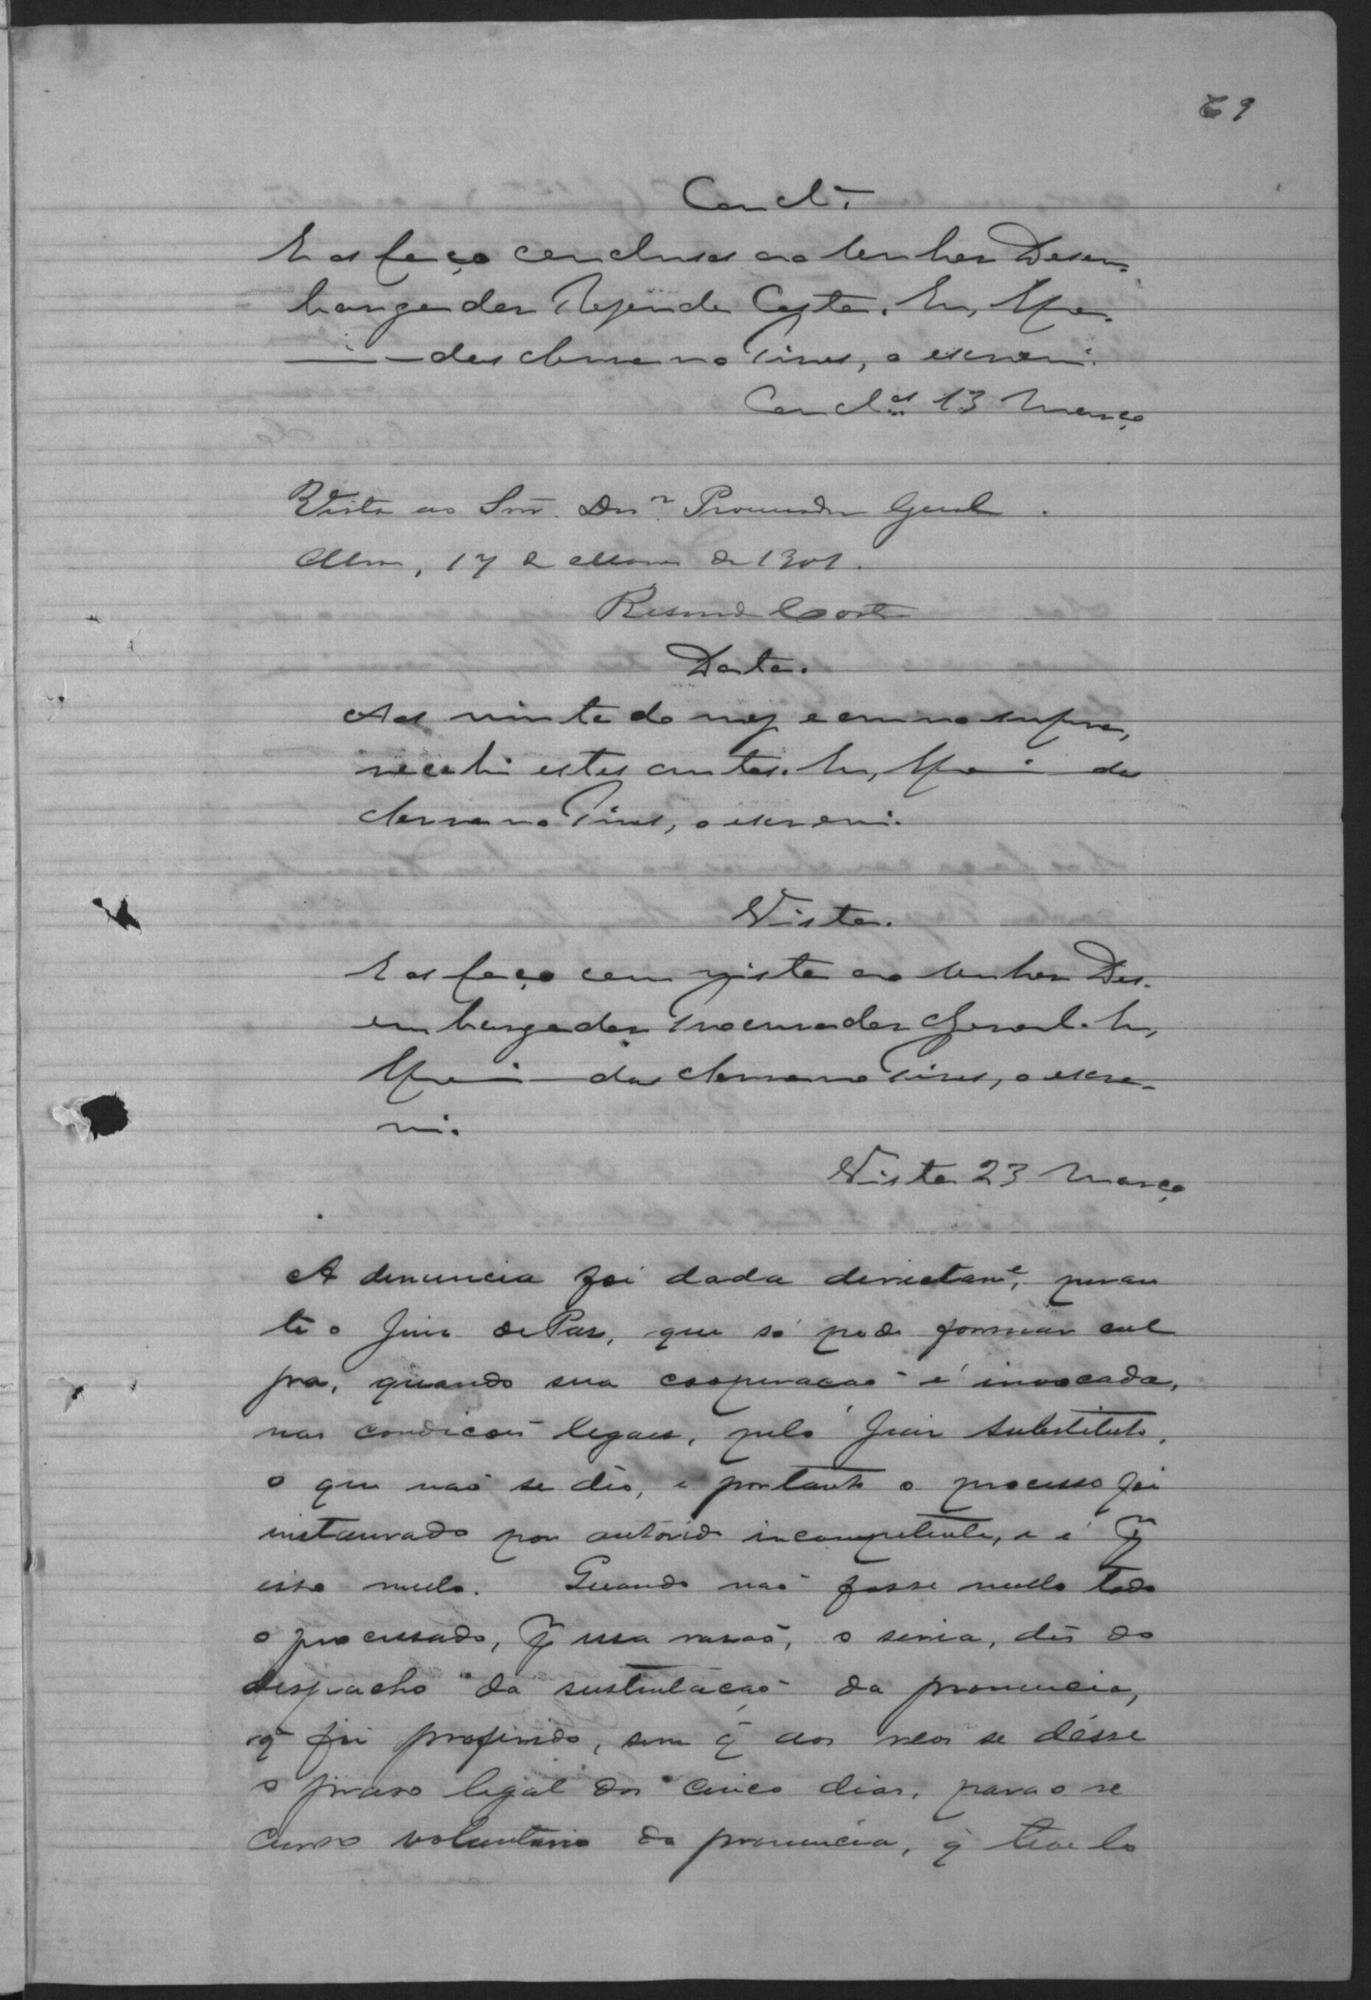 69
Concl.
E os faço conclusos ao senhor Desem-
bargador Rezende Costa. Eu,
o escrevi.
Concl.os 13 Março
Vista ao Snr. Desor. Procurador Geral.
17 de Março de 1901.
Resende Costa
Data.
Aos vinte do mez e anno supra,
recebi estes autos. Eu,
o escrevi.
Vista.
E os faço com vista ao senhor Des-
embargador Procurador Geral. Eu,
o escre-
vi.
Vista 23 Março
A denuncia foi dada directame, peran
te o Juiz de Paz, que só pode formar cul
pa, quando sua cooperação é invocada,
nas condicões legaes, pelo Juiz substituto,
o que não se deo, e portanto o processo foi
instaurado por autorid incompetente, e é
isso nullo. Quando não fosse nullo todo
o processado, essa rasão, o seria, des do
despacho da sustentação da pronuncia,
q̃ foi proferido, sem q̃ aos reos se désse
o praso legal dos cinco dias, para o re
curso voluntario da pronuncia, q̃